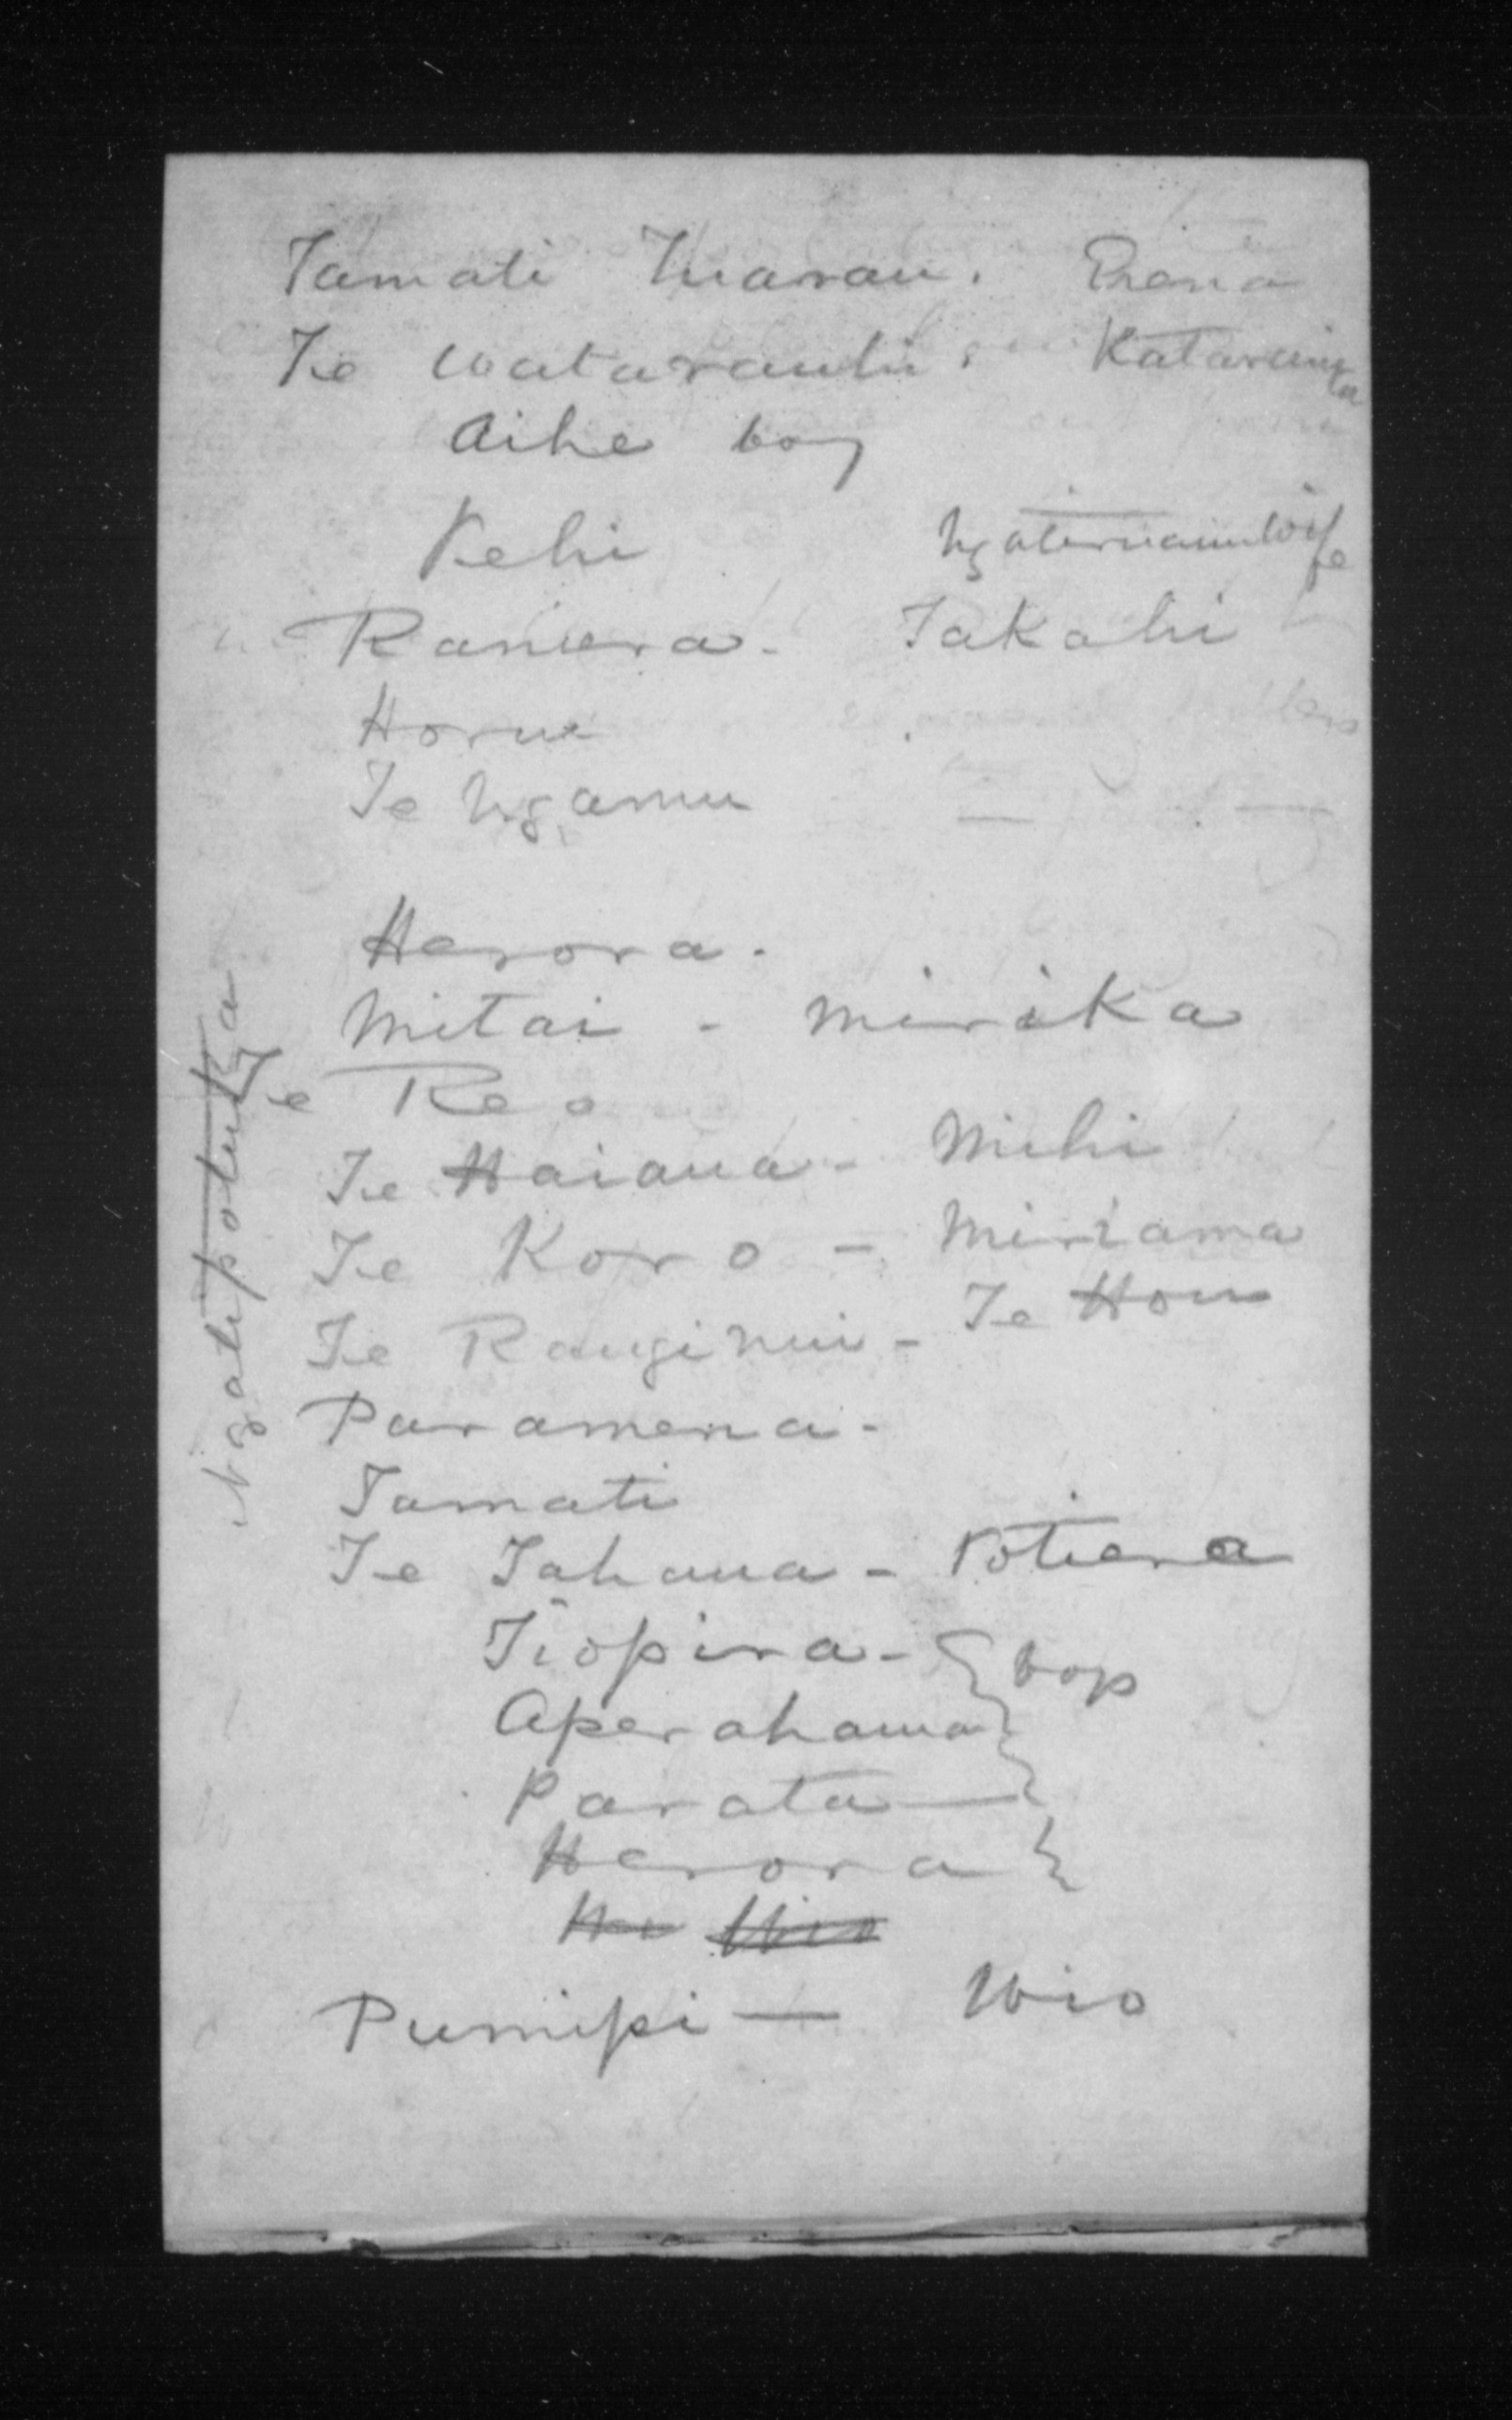 Tamati Tuarau. Riena
Te Watarauhi. Katarina
Aihe boy
Kehi Ngatiruanui Wife
Raniera. Takahi
Horue
Te Ngamu
Herora.
Mitai - Mirika
Te Reo
Te Haiana - Mihi
Te Koro - Miriama
Te Rangi Nui - Te Hou
Paramena -
Tamati
Te Tahana - Potiera
Tiopira - boys
Aperahama
Parata
Herora
Pumipi — Wio
Ngatipotuka